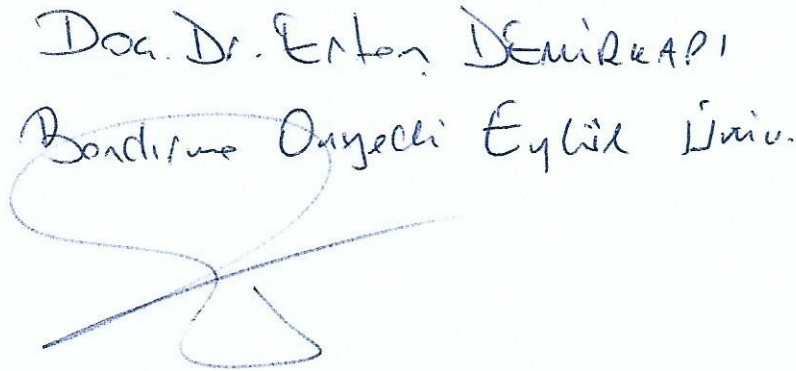 Doç. Dr. Ertan DEMİRKAPI
Bandırma Onyedi Eylül Üniv.